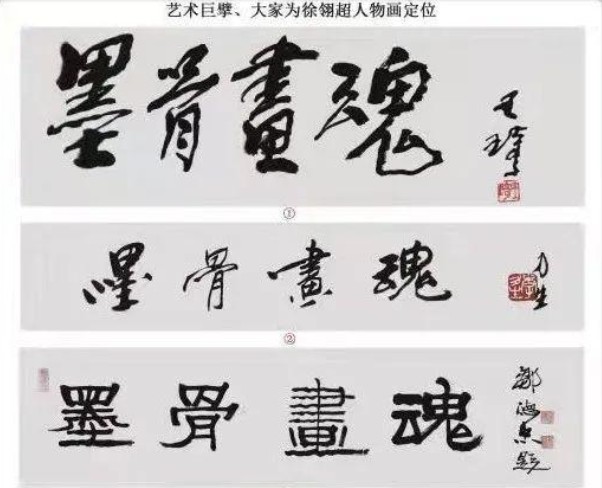 艺术巨擘、大家为徐翎超人物画定位
墨骨畫魂
王琦
①
墨骨畫魂
力生
②
墨骨畫魂